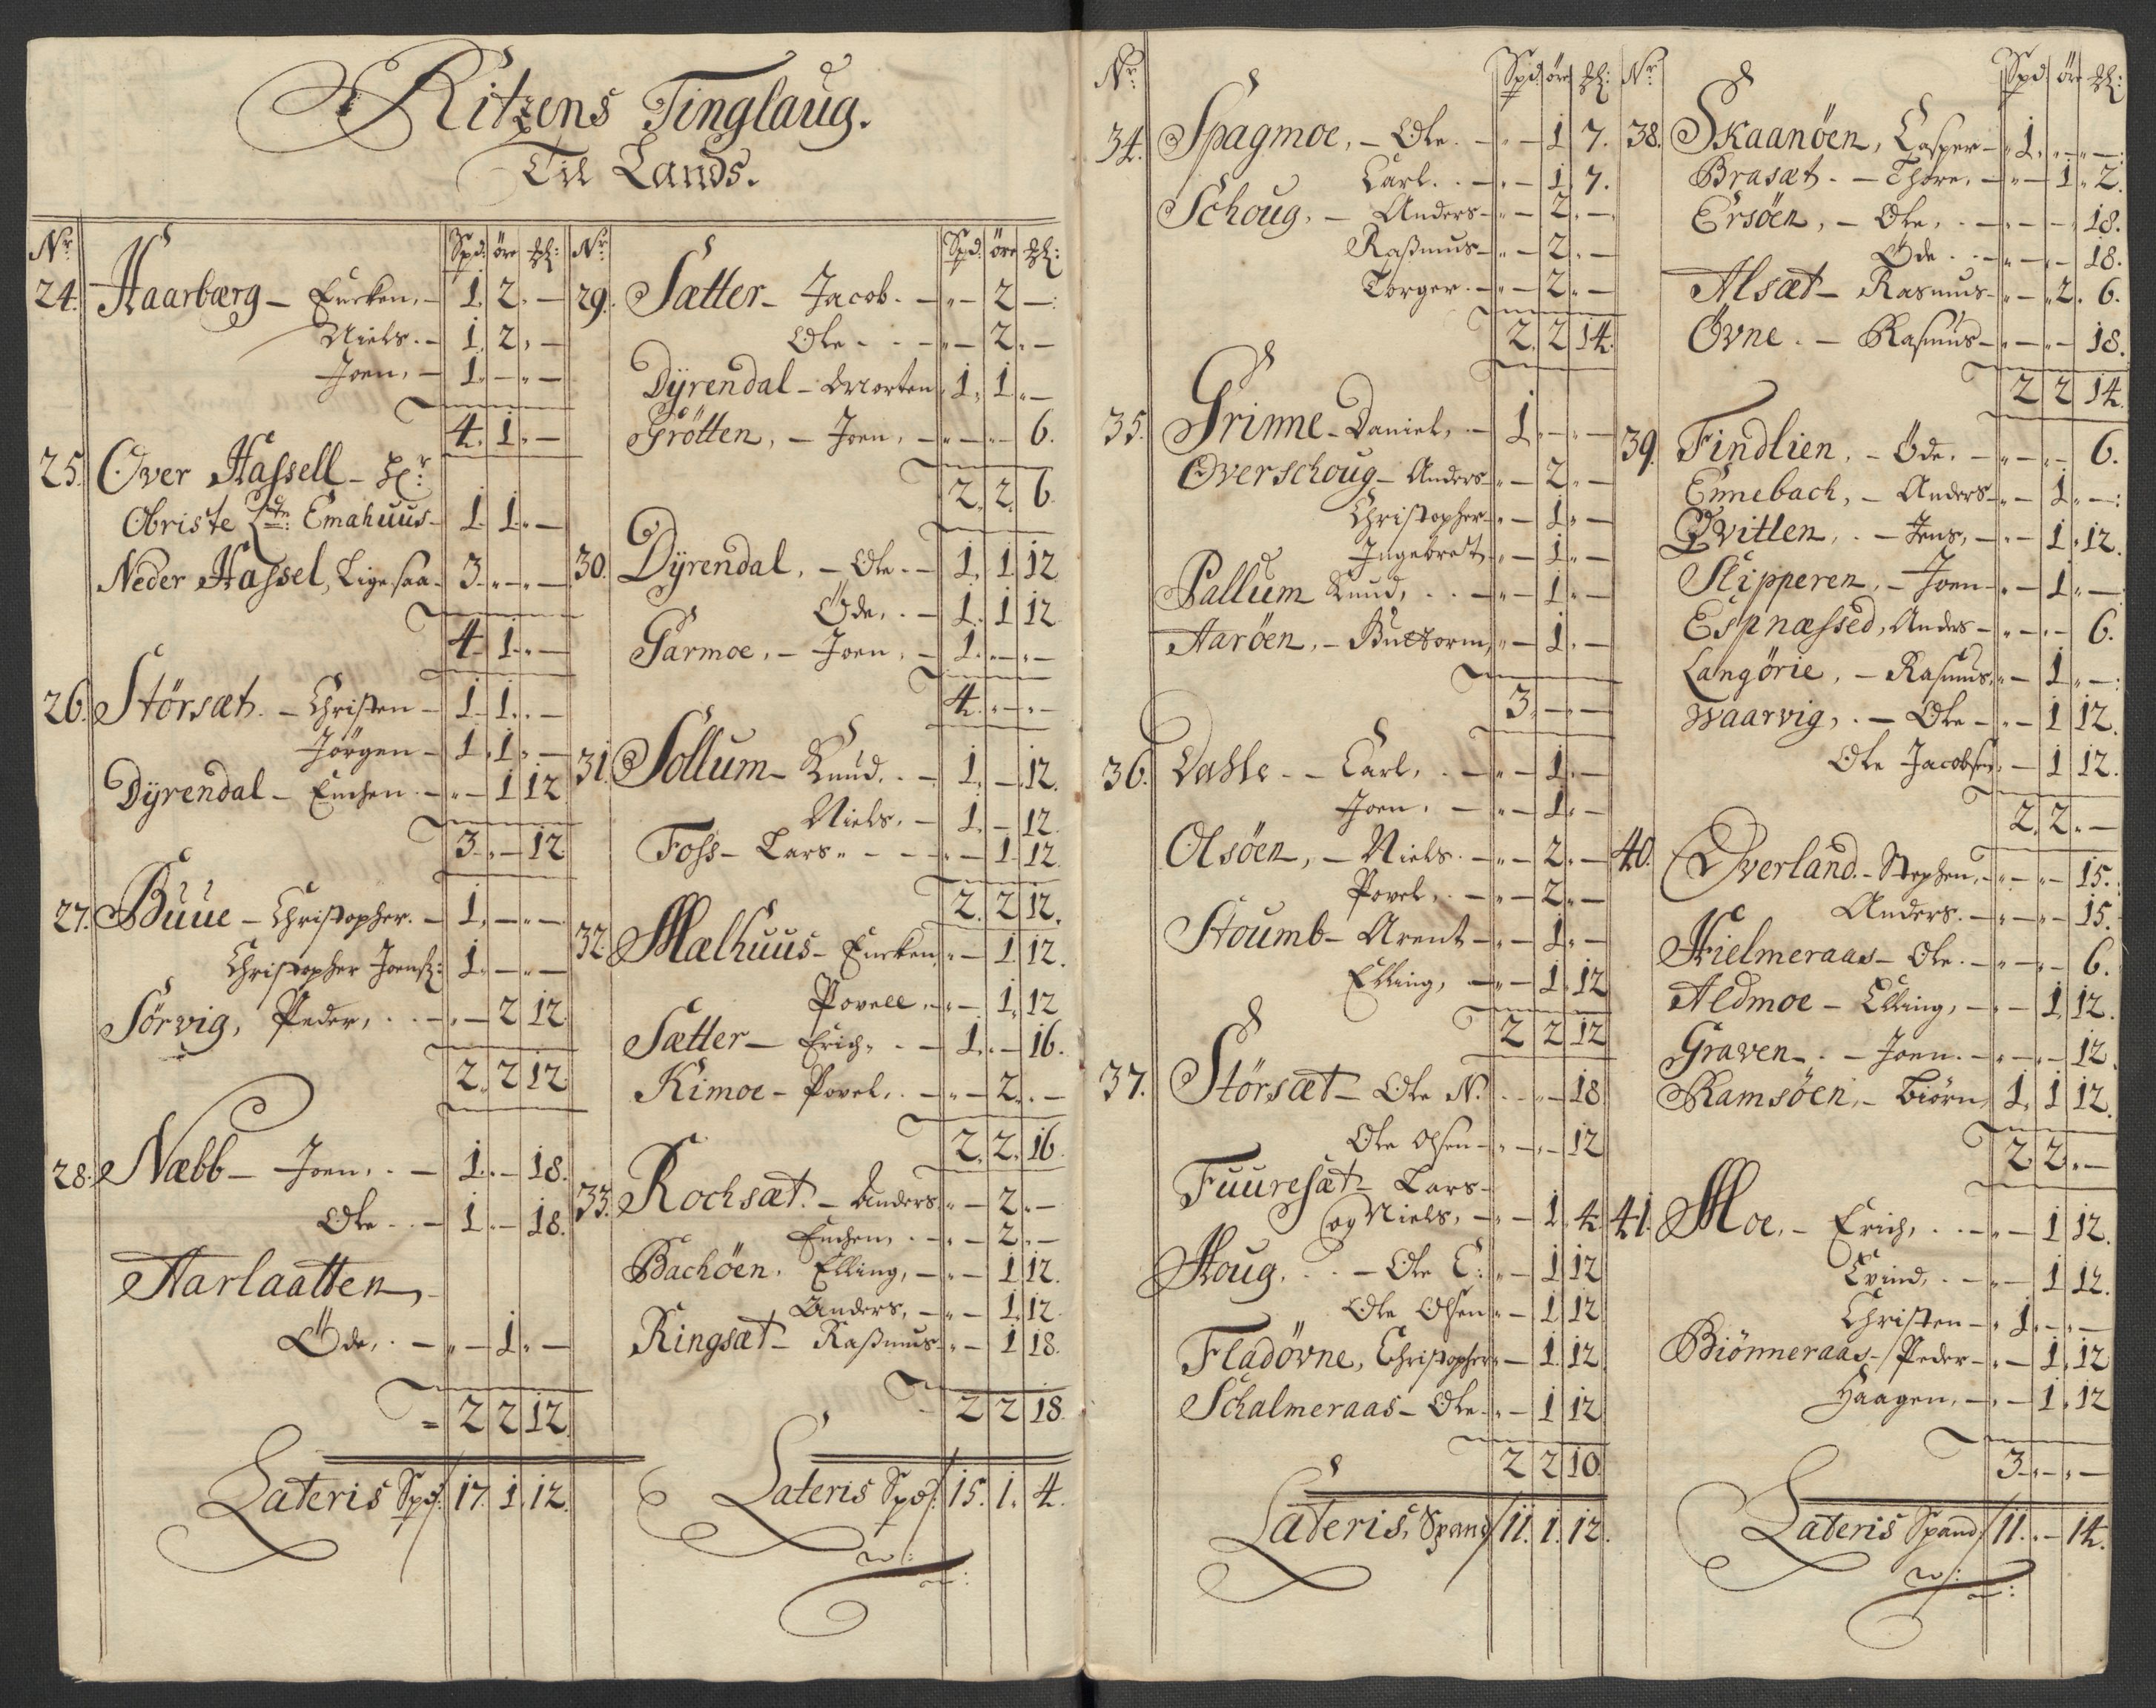 Ritzens Tinglaug.
Til Lands.
Nr Spd: öre
24. Haarbærg - Encken, - 1. 2. -
Niels. - 1. 2. -
Joen, - 1. - . -
4. 1. -
25. Over Hassell - Hr:
Obriste Ltn: Emahuus - 1. 1. -
Neder Hassel, Lige saa - 3. - . -
4. 1. -
26. Störsæt. - Christen - 1. 1. -
Jörgen - 1. 1. -
Dÿrendal - Enchen. - " - 1 12
3. - 12
27. Buue - Christopher. - 1. - . -
Christopher Joens: 1. - . -
Sörvig, Peder, . . - . - 2 12
2. 2 12
28. Næbb - Joen, . - 1. - 18.
Ole . . - 1. - 18.
Harlaatten,
Öde, . - " - 1. -
2 2 12
Lateris Spd: 17. 1. 12.
Nr Spd. öre
29. Sætter - Jacob. - " - 2 - :
Ole - . - " - 2. -
Dÿrendal - Morten 1. 1. -
Grötten, - Joen, - " - . - 6.
2. 2. 6
30. Dÿrendal, - Ole. - 1. 1 12
Öde, . - 1. 1 12
Garmoe, - Joen, - 1. - . -
4. - . -
31. Sollum - Knud, . - 1. - 12.
Niels, - 1. - 12.
Foss - Lars " - - " - 1 12
2. 2 12.
32. Mælhuus - Encken, " - 1 12.
Povell, - " - 1. 12
Sætter - Erich, . - 1. - 16.
Kimoe - Povel, . - " - 2. -
2. 2. 16
33. Rochsæt. - Anders " - 2. -
Enchen, . - " - 2. -
Bachöen. Elling, - " - 1 12.
Anders, - " - 1. 12.
Ringsæt - Rasmus - " - 1 18.
2 2 18.
Lateris Spd: 15. 1. 4.
Nr Spd öre
34. Spagmoe, - Ole. - " - 1 7.
Carl. . - " - 1. 7.
Schoug, - Anders - " - 2. -
Rasmus - " - 2. -
Torger. - " - 2. -
2. 2 14.
35. Grinne - Daniel, . - 1. - . -
Overschoug - Anders - " - 2. -
Christopher - " - 1. -
Ingebret - " - 1. -
Pallum Knud, . . - " - 1. -
Aaröen, - Guttorm, " - 1. -
3. - . -
36. Dahle - - Carl, . - " - 1. -
Joen, - " - 1. -
Olsöen, - Niels. - " - 2. -
Povel, . - " - 2. -
Stoumb - Arent - " - 1. -
Elling, - " - 1. 12
2 2 12
37. Störsæt - Ole N. . - " - 18
Ole Olsen - " - . - 12
Fuuresæt - Lars -
og Niels, - " - 1. 4.
Houg, . . - Ole E: " - 1 12
Ole Olsen " - 1 12
Fladövne, Christopher " - 1. 12
Schalmeraas - Ole - " - 1 12
2 2 10
Lateris, Spand 11. 1. 12.
Nr Spd öre
38. Skaanöen, Casper - " 1. - . - :
Brasæt . - Thore, - " - 1. 2.
Ersöen, - Ole, . - " - . - 18.
Öde . . - " - . - 18.
Alsæt - Rasmus - " - 2. 6.
Övne. - Rasmus - " - . - 18.
2 2 14.
39. Findlien, - Öde, - " - . - 6.
Ennebach, - Anders - " - 1. - :
Qvitlen, . - Jens, - " - 1. 12.
Slipperen, - Joen - " - 1. -
Espnæssed, Anders - " - . - 6.
Langörie, - Rasmus, " - 1. - :
Waarvig, . - Ole - " - 1 12.
Ole Jacobsen, - 1 12.
2. 2. -
40. Overland. - Stephen, - " - . - 15.
Anders. - " - . - 15.
Hielmeraas - Ole. - " - . - 6.
Aldmoe - Elling, - " - 1. 12.
Graven - . - Joen. - " - . - 12.
Ramsöen, - Biörn 1. 1 12.
2 2. -
41. Moe, - Erich, . - " - 1 12.
Evind, . - " - 1 12.
Christen - " 1. - . -
Biönneraas - Peder - " - 1. 12
Haagen, - " - 1. 12
3. - . -
Lateris Spand 11. - 14.